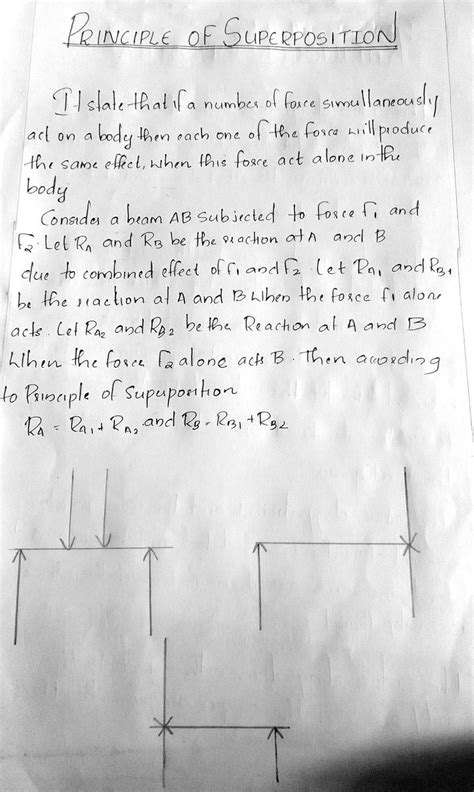 PRINCIPLE OF SUPERPOSITION
It state that if a number of force simultaneously
act on a body then each one of the force will produce
the same effect, when this force act alone in the
body
Consider a beam AB subjected to force F1 and
F2. Let RA and RB be the reaction at A and B
due to combined effect of F1 and F2. Let RA1, and RB1
be the reaction at A and B when the force F1 alone
acts. Let RA2 and RB2 be the Reaction at A and B
When the force F2 alone acts B. Then according
to Principle of Supuposition
RA = RA1 + RA2 and RB = RB1 + RB2